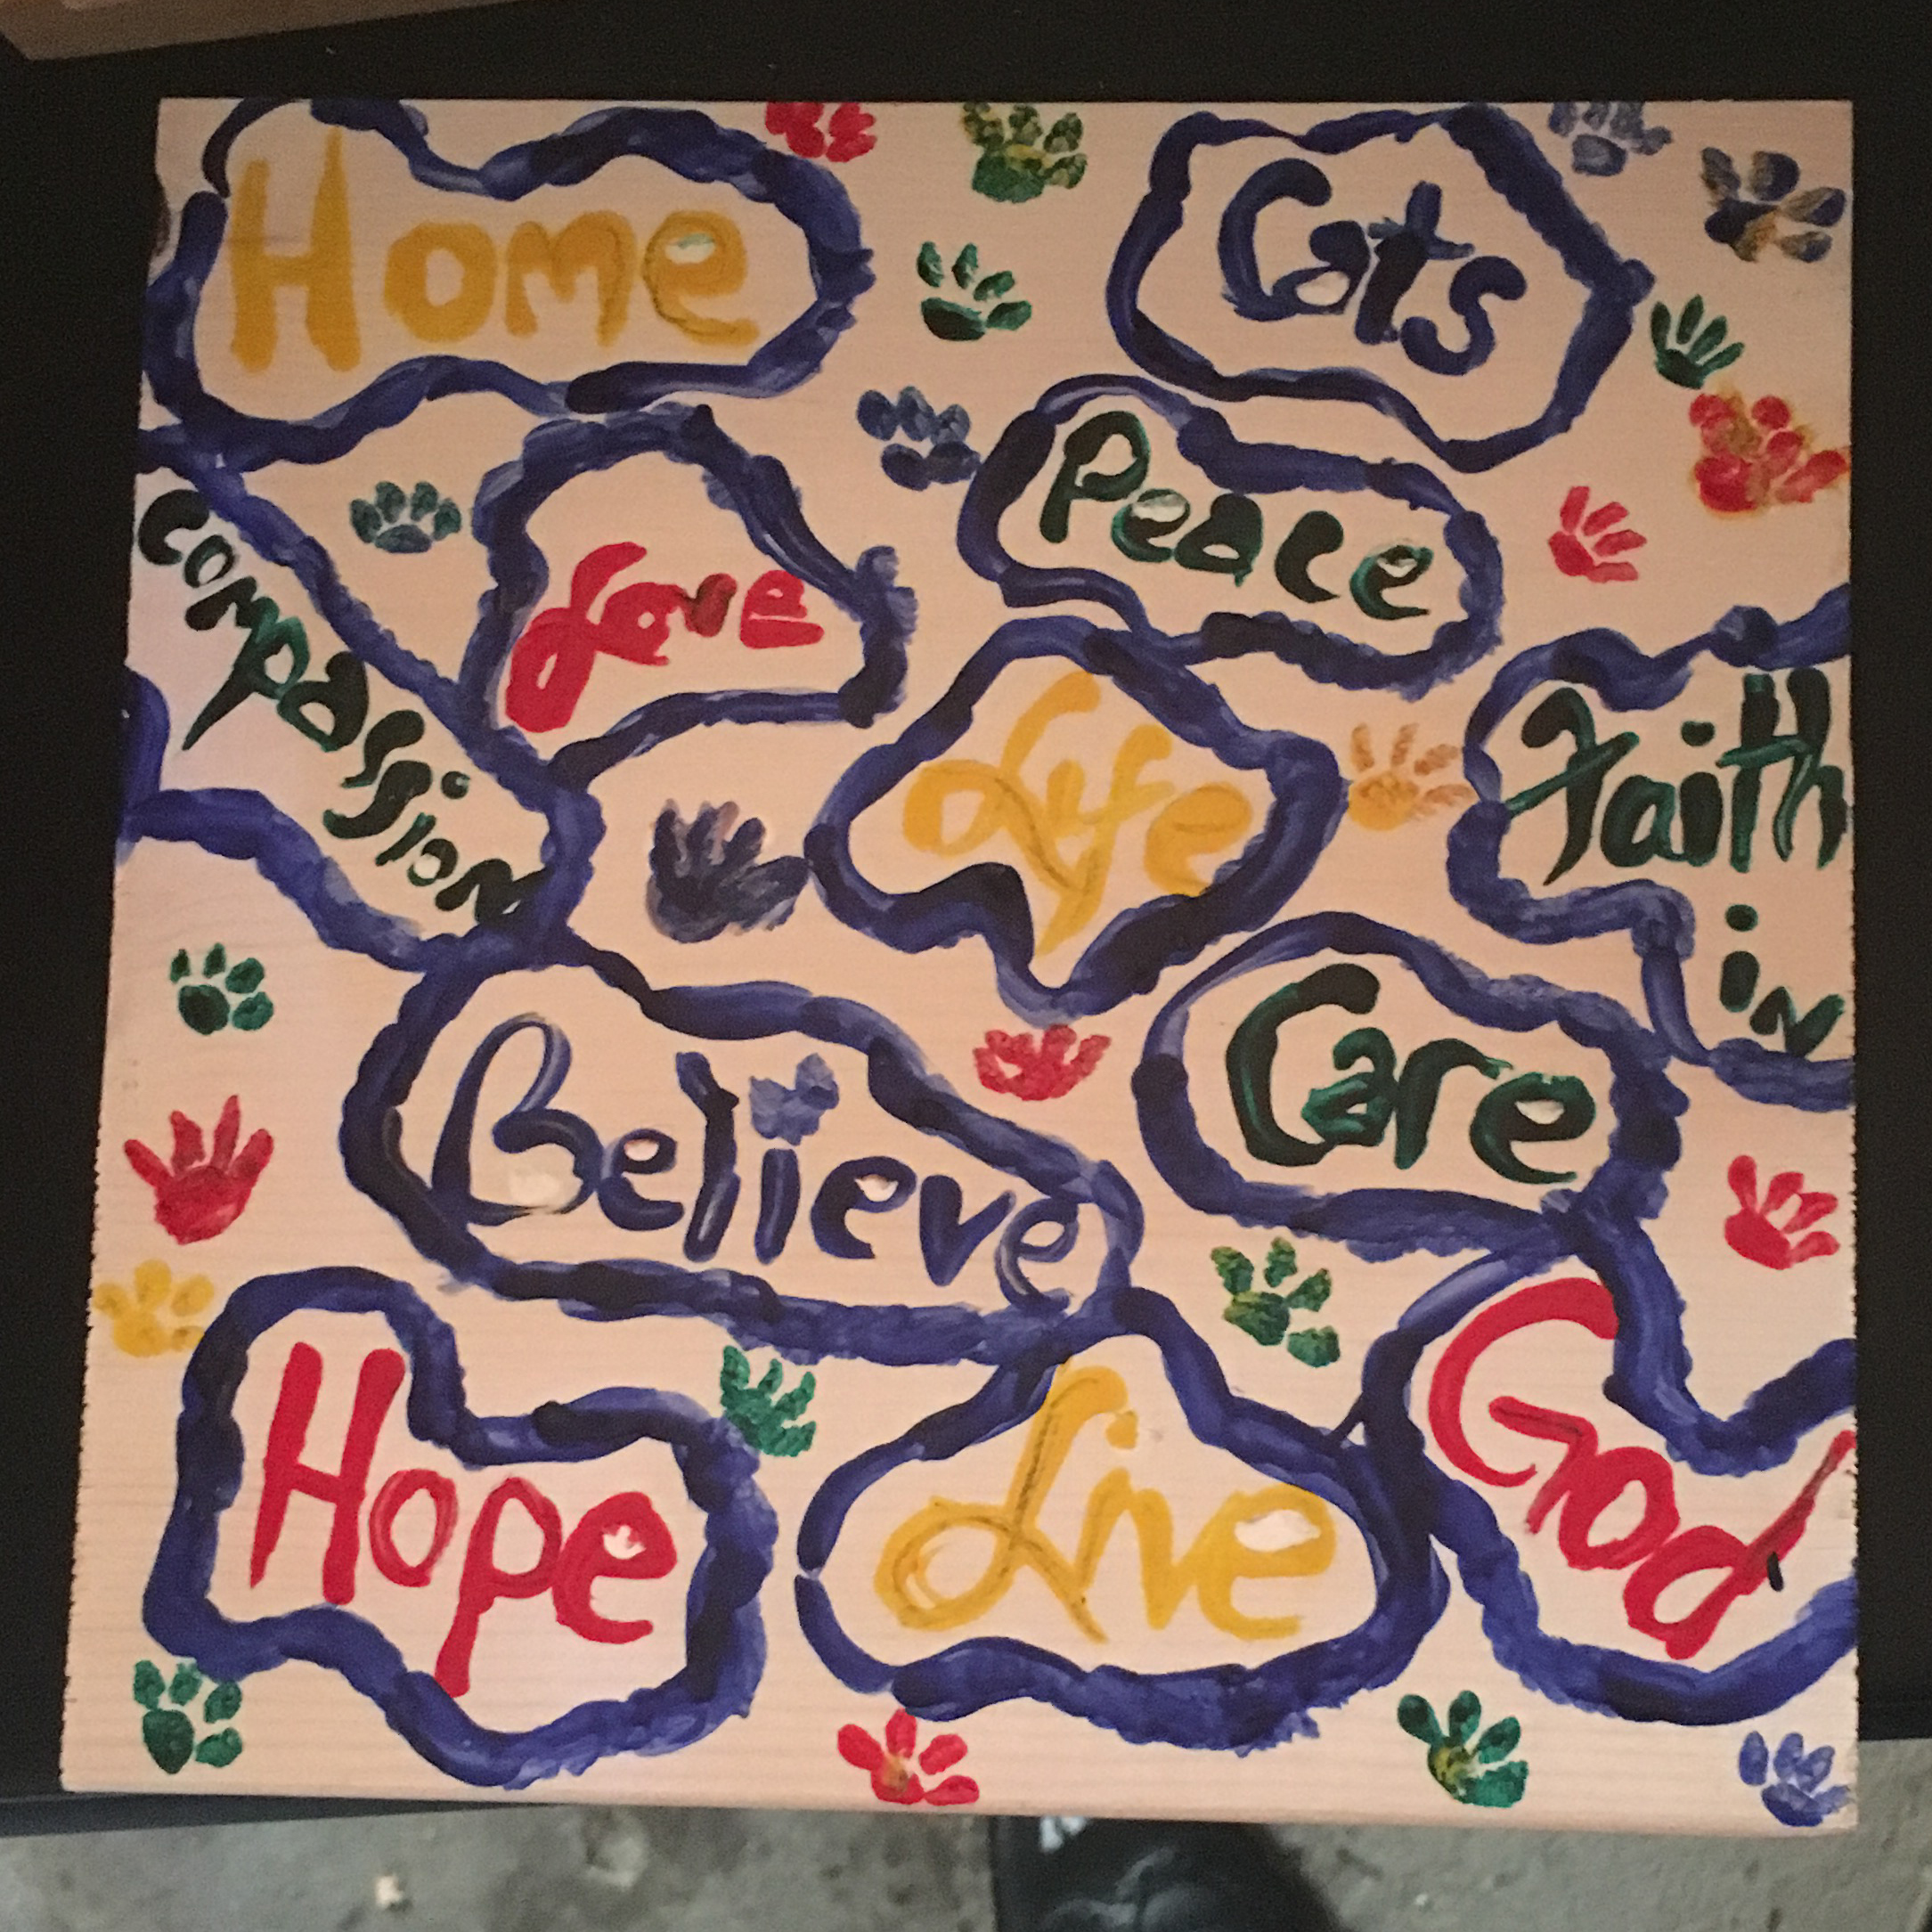 Home
Cats
Peace
Compassion
Love
Life
Faith
in
Care
Believe
God
Hope
Live